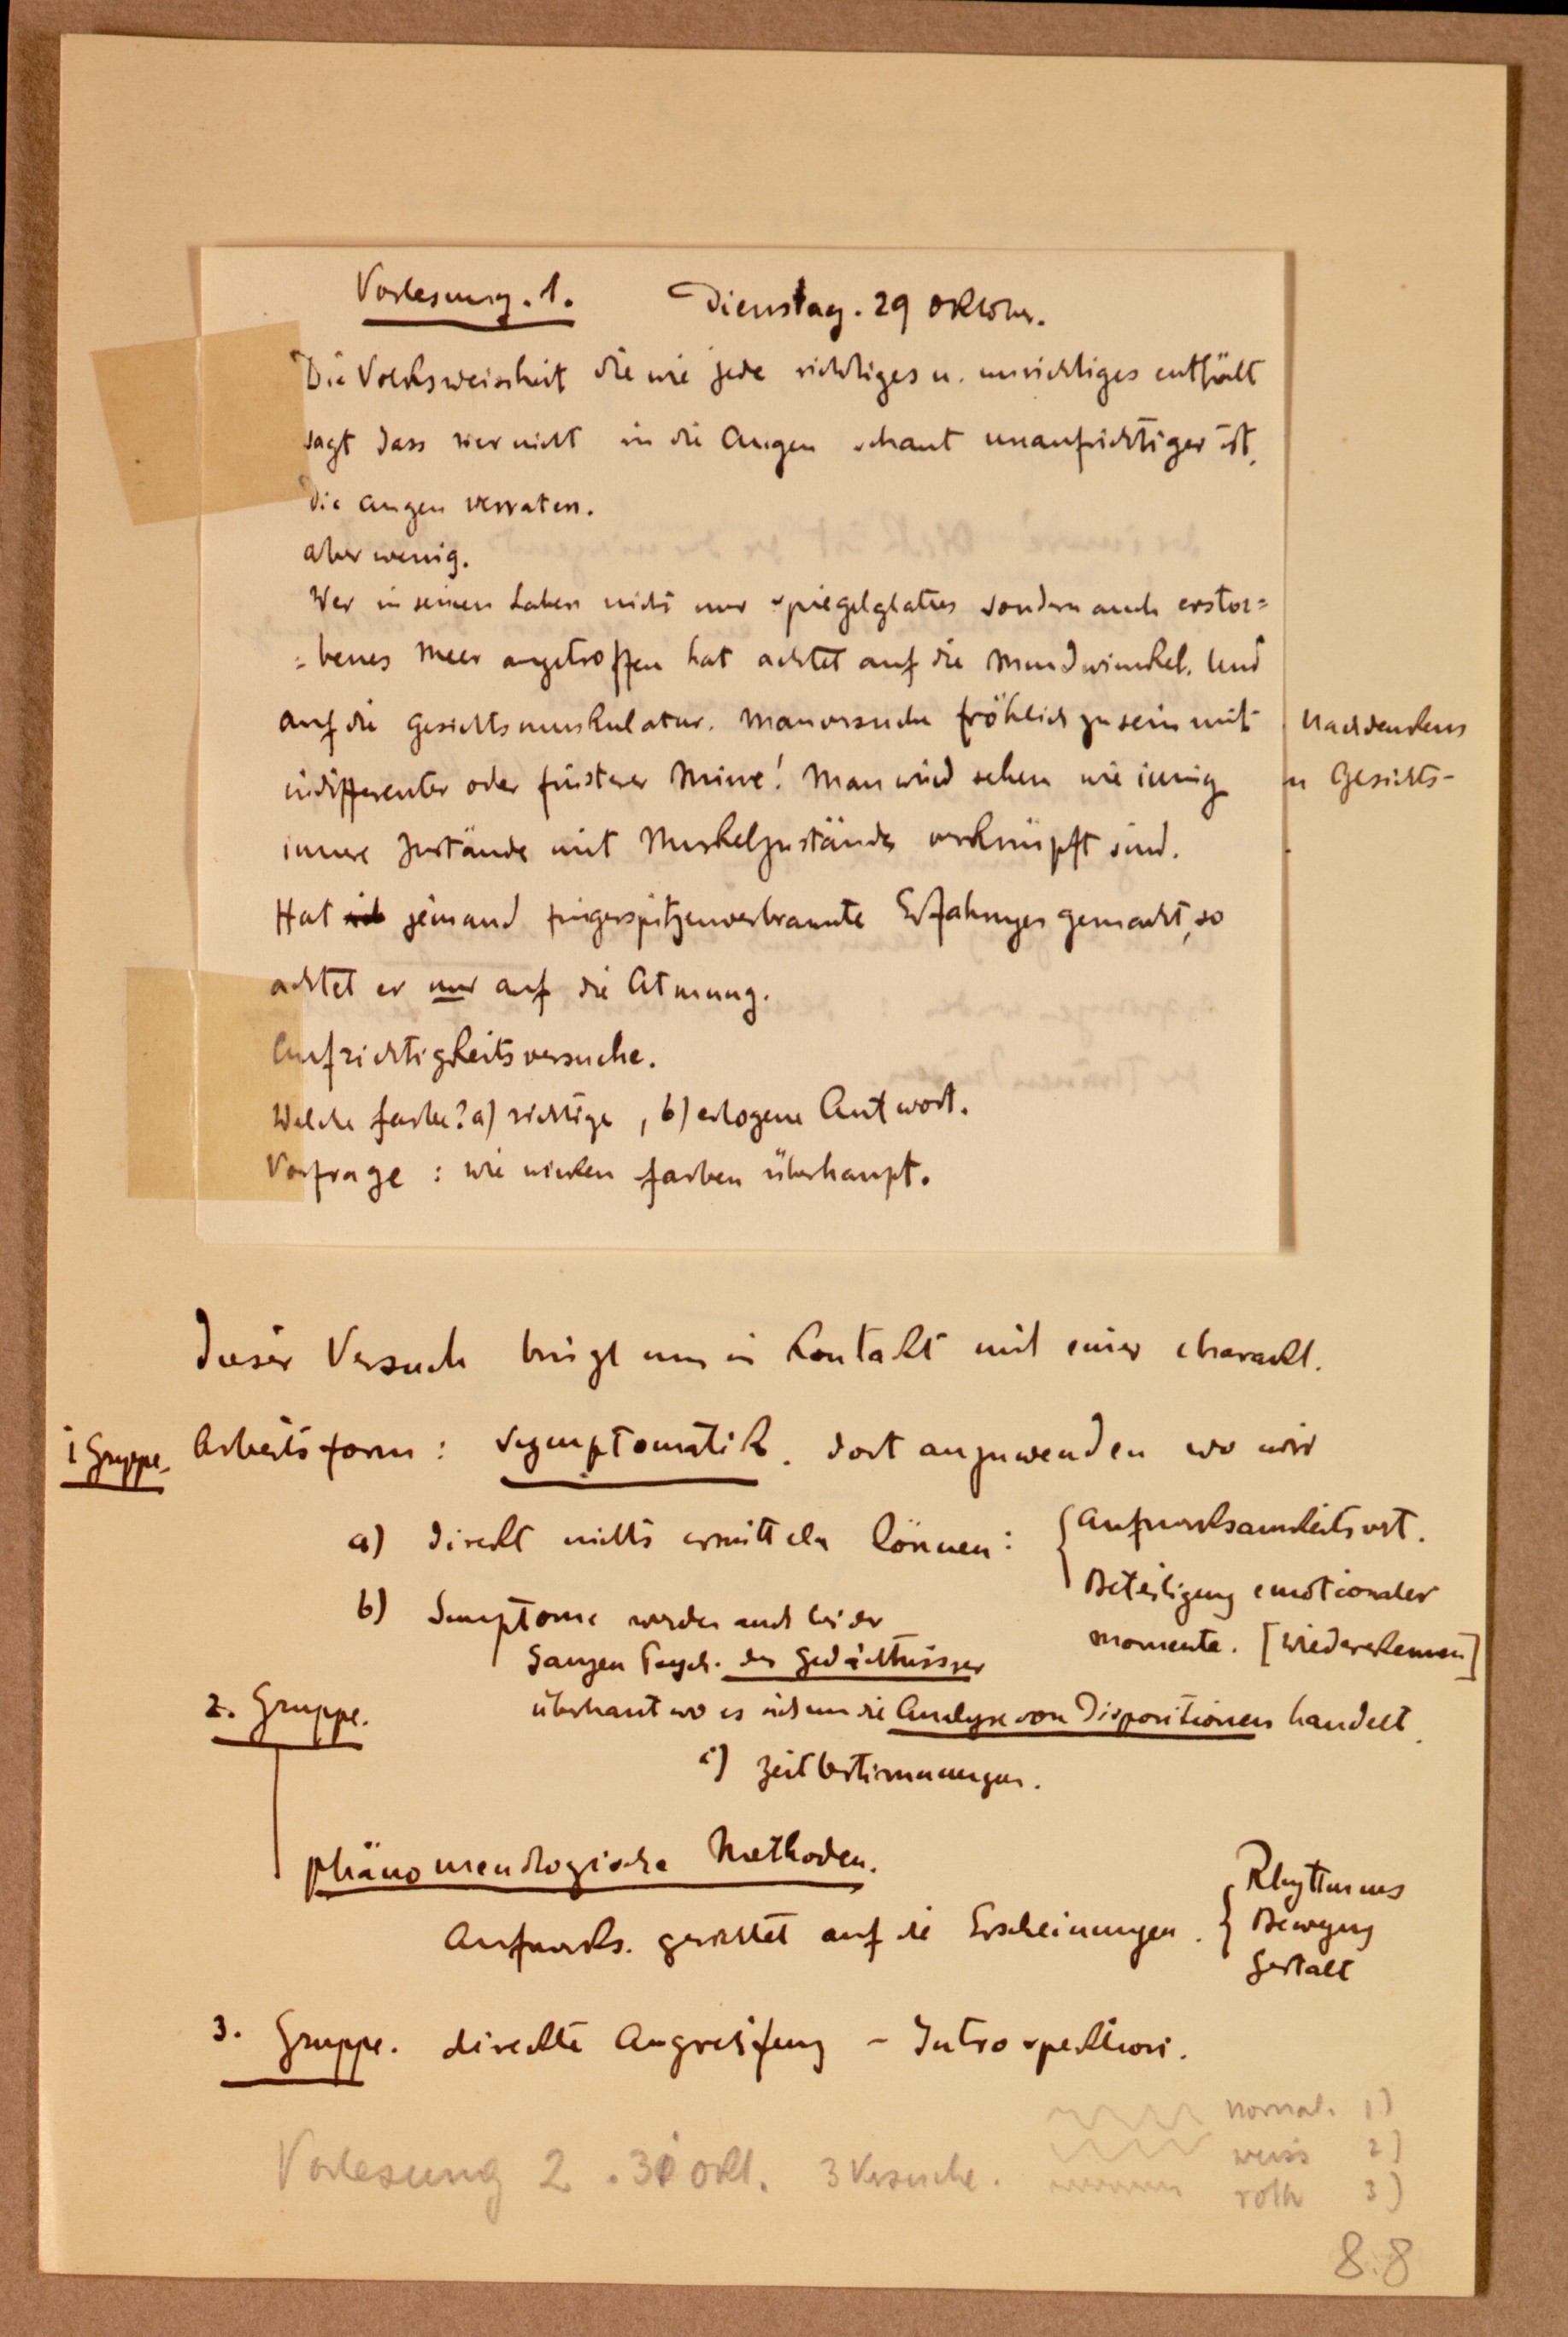 Vorlesung. 1. Dienstag. 29 Oktober.
Die Volksweisheit die wie jede richtiges u. unrichtiges enthält
sagt dass wer nicht in die Augen schaut unaufrichtiger ist,
die Augen verraten.
aber wenig.
Wer in seinen Leben nicht nur spiegelglattes sondern auch erstor=
=benes Meer angetroffen hat achtet auf die Mundwinkel. Und
auf die Gesichtsmuskulatur. Man versuche fröhlich zu sein mit
Nachdenkens
indifferenter oder finsterer Mine! Man wird sehen wie innig
n Gesichts-
innere Zustände mit Muskelzustände verknüpft sind.
Hat jemand fingerspitzenverbrannte Erfahrungen gemacht, so
achtet er nur auf die Atmung.
Aufrichtigkeitsversuche.
Welche farbe? a) richtige, b) erlogene Antwort.
Vorfrage: wie wirken farben überhaupt.
Dieser Versuch bringt uns in Kontakt mit einer charackt.
1 Gruppe. Arbeitsform: Symptomatik. dort anzuwenden wo wir
a) direkt nichts ermitteln können: { Aufmerksamkeitsart.
Beteiligung emotionaler
momente. [wiedererkennen]
b) Symptome werden auch bei der
ganzen Psych. des Gedächtnisses
überhaut wo es sich um die Analyse von Dispositionen handelt.
c) Zeitbestimmungen.
2. Gruppe.
phänomenologische Methoden.
Aufmerks. gerichtet auf die Erscheinungen. { Rhythmus
Bewegung
Gestalt
3. Gruppe. direkte Angreifung - Introspektion.
Vorlesung 2. Okt. 3 Versuche.
normal. 1)
weiss 2)
roth 3)
8.8